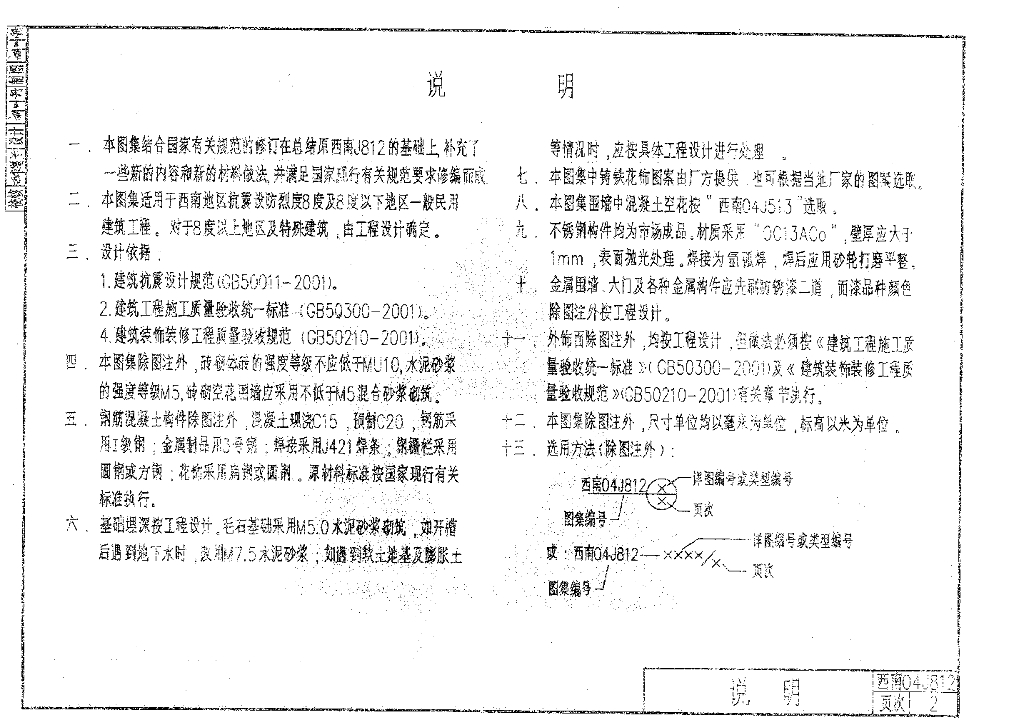 说 明
一. 本图集结合国家有关规范的修订在总结原西南J812的基础上,补充了
一些新的内容和新的材料做法,并满足国家现行有关规范要求修编而成
二. 本图集适用于西南地区抗震设防烈度8度及8度以下地区一般民用
建筑工程。对于8度以上地区及特殊建筑,由工程设计确定。
三. 设计依据:
1.建筑抗震设计规范(GB50011-2001)。
2.建筑工程施工质量验收统一标准 (GB50300-2001)。
4.建筑装饰装修工程质量验收规范 (GB50210-2001)。
四. 本图集除图注外,砖砌体砖的强度等级不应低于MU10,水泥砂浆
的强度等级M5,砖砌空花围墙应采用不低于M5混合砂浆砌筑。
五. 钢筋混凝土构件除图注外,混凝土现浇C15,预制C20,钢筋采
用I级钢;金属制品用3号钢;焊接采用J421焊条;钢栅栏采用
圆钢或方钢;花饰采用扁钢或圆钢。原材料标准按国家现行有关
标准执行。
六. 基础埋深按工程设计。毛石基础采用M5.0水泥砂浆砌筑,如开槽
后遇到地下水时,改用M7.5水泥砂浆;如遇到软土地基及膨胀土
等情况时,应按具体工程设计进行处理 。
七. 本图集中铸铁花饰图案由厂方提供,也可根据当地厂家的图案选取。
八. 本图集围墙中混凝土空花按"西南04J513"选取。
九. 不锈钢构件均为市场成品。材质采用"0C13ACo",壁厚应大于
1mm,表面抛光处理。焊接为氩弧焊,焊后应用砂轮打磨平整。
十. 金属围墙、大门及各种金属构件应先刷防锈漆二道,面漆品种颜色
除图注外按工程设计。
十一. 外饰面除图注外,均按工程设计,但做法必须按《建筑工程施工质
量验收统一标准》(GB50300-2001)及《建筑装饰装修工程质
量验收规范》(GB50210-2001)有关章节执行。
十二. 本图集除图注外,尺寸单位均以毫米为单位,标高以米为单位。
十三. 选用方法(除图注外):
西南04J812 详图编号或类型编号
页次
图集编号
或:西南04J812—××××/× 详图编号或类型编号
页次
图集编号
说 明
西南04J812
页次 2